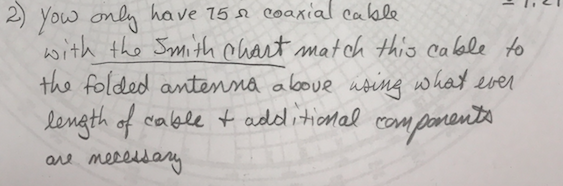 2) You only have 75 Ω coaxial cable
with the Smith Chart match this cable to
the folded antenna above using what ever
length of cable + additional components
are necessary